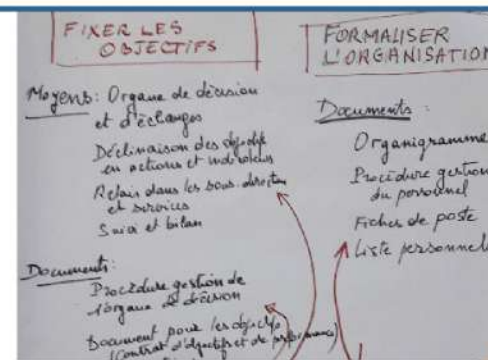 FIXER LES
OBJECTIFS
Moyens: Organe de décision
et d'échanges
Déclinaison des objectifs
en actions et indicateurs
Relais dans les sous-direction
et services
Suivi et bilan
Documents:
Procédure gestion de
l'organe de décision
Document pour les objectifs
(Contrat d'objectifs et de performance)
FORMALISER
L'ORGANISATION
Documents :
Organigramme
Procédure gestion
du personnel
Fiches de poste
Liste personnel